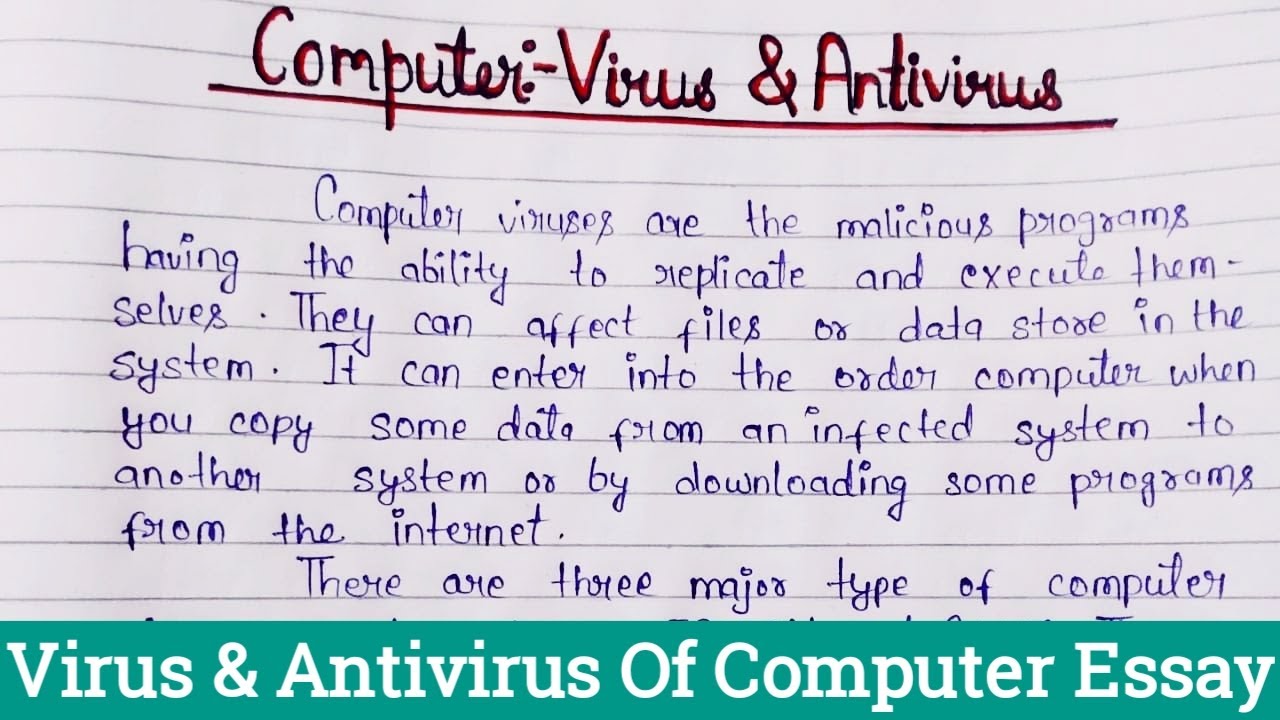 Computer:-Virus & Antivirus
Computer viruses are the malicious programs
having the ability to replicate and execute them-
selves. They can affect files or data store in the
system. It can enter into the order computer when
you copy some data from an infected system to
another system or by downloading some programs
from the internet.
There are three major type of computer
Virus & Antivirus Of Computer Essay